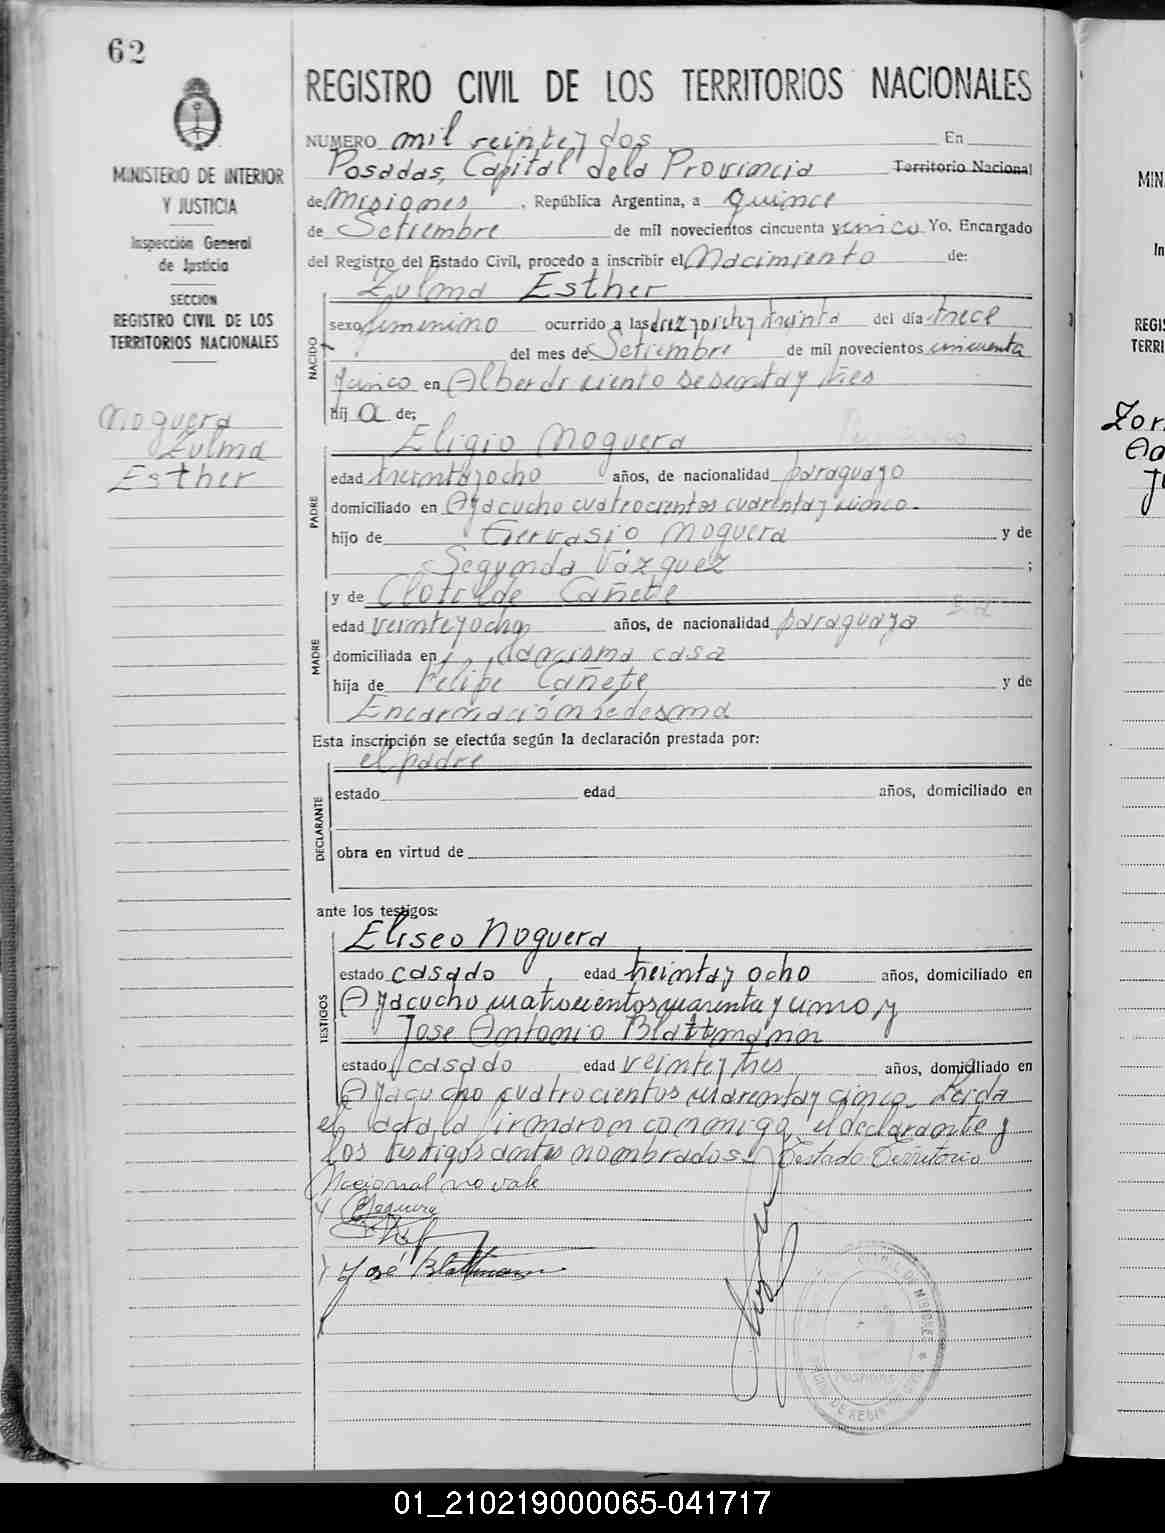 62
MINISTERIO DE INTERIOR
Y JUSTICIA
Inspección General
de Justicia
SECCION
REGISTRO CIVIL DE LOS
TERRITORIOS NACIONALES
Noguera
Zulma
Esther
REGISTRO CIVIL DE LOS TERRITORIOS NACIONALES
NUMERO mil veinte y dos En
Posadas, Capital de la Provincia Territorio Nacional
de Misiones, República Argentina, a quince
de Setiembre de mil novecientos cincuenta y cinco Yo, Encargado
del Registro del Estado Civil, procedo a inscribir el Nacimiento de:
NACIDO
Zulma Esther
sexo femenino ocurrido a las diez y siete y treinta del día trece
del mes de Setiembre de mil novecientos cincuenta
y cinco en Alberdi ciento sesenta y tres
hij a de;
PADRE
Eligio Noguera
edad treinta y ocho años, de nacionalidad paraguayo
domiciliado en Ayacucho cuatrocientos cuarenta y cinco.
hijo de Gervasio Noguera y de
Segunda Vázquez ;
MADRE
y de Clotilde Cañete
edad veinte y ocho años, de nacionalidad paraguaya
domiciliada en la misma casa
hija de Felipe Cañete y de
Encarnación Ledesma
Esta inscripción se efectúa según la declaración prestada por:
DECLARANTE
el padre
estado edad años, domiciliado en
obra en virtud de
ante los testigos:
TESTIGOS
Eliseo Noguera
estado casado edad treinta y ocho años, domiciliado en
Ayacucho cuatrocientos cuarenta y uno, y
José Antonio Blattmann
estado casado edad veinte y tres años, domiciliado en
Ayacucho cuatrocientos cuarenta y cinco. Leida
el acta la firmaron conmigo, el declarante y
los testigos antes nombrados. Testado Territorio
Nacional no vale
Noguera
José Blattmann
MIN
In
REGIS
TERRI
01_210219000065-041717